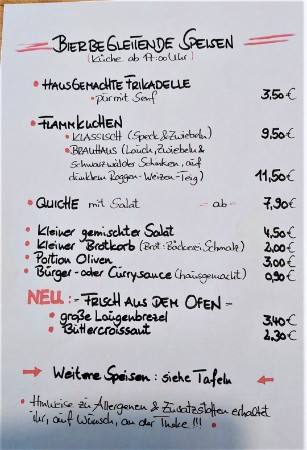 = BIERBEGLEITENDE SPEISEN =
(Küche ab 17:00 Uhr)
• HAUSGEMACHTE FRIKADELLE
• pur mit Senf 3,50€
• FLAMMKUCHEN
• KLASSISCH (Speck & Zwiebeln) 9,50€
• BRAUHAUS (Lauch, Zwiebeln &
schwarzwälder Schinken, auf
dunklem Roggen-Weizen-Teig) 11,50€
• QUICHE mit Salat - ab - 7,90€
• Kleiner gemischter Salat 4,50€
• Kleiner Brotkorb (Brot: Bäckerei Schmalz) 2,00€
• Portion Oliven 3,00€
• Bürger- oder Currysauce (hausgemacht) 0,90€
NEU: - FRISCH AUS DEM OFEN -
• große Laugenbrezel 3,40€
• Buttercroissant 2,30€
→ Weitere Speisen: siehe Tafeln ←
• Hinweise zu Allergenen & Zusatzstoffen erhaltet
ihr, auf Wunsch, an der Theke !!! •